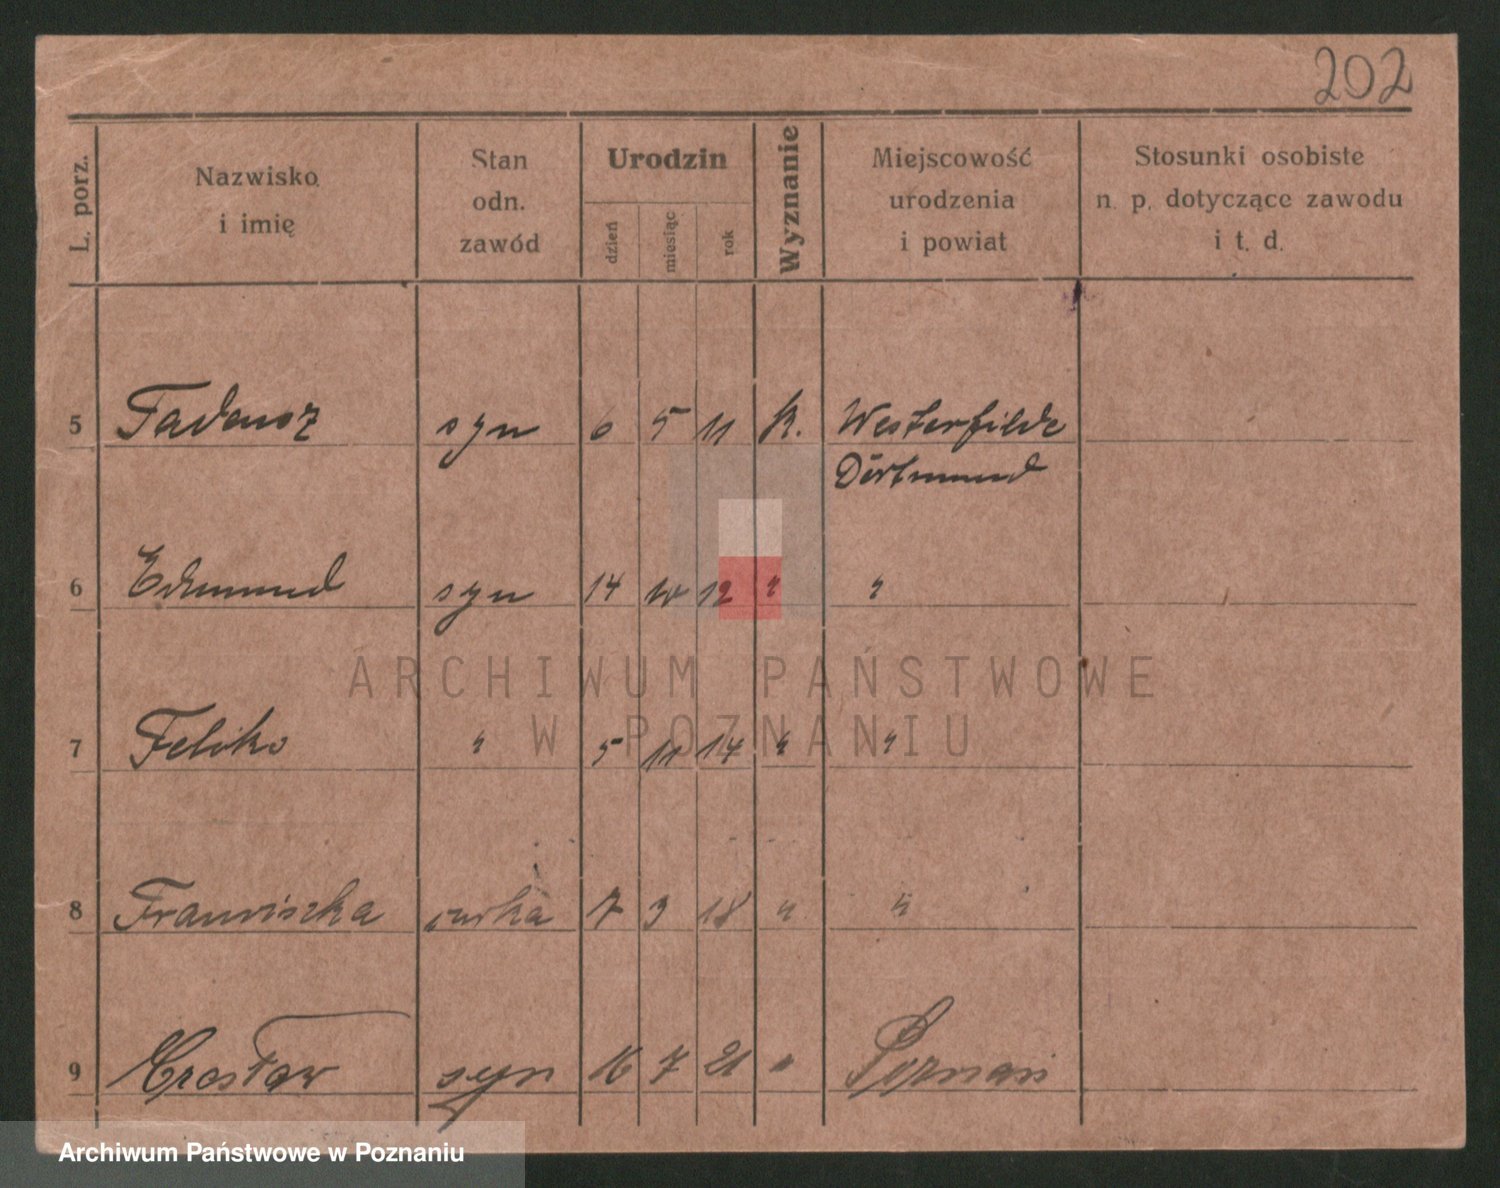 202
L. porz.
Nazwisko
i imię
Stan
odn.
zawód
Urodzin
dzień
miesiąc
rok
Wyznanie
Miejscowość
urodzenia
i powiat
Stosunki osobiste
n. p. dotyczące zawodu
i t. d.
5 Tadeusz syn 6 5 11 k. Westerfilde
Dortmund
6 Edmund syn 14 10 12 " "
7 Feliks " 5 11 14 " "
8 Franciszka curka 7 3 18 " "
9 Czesław syn 16 7 21 " Poznań
ARCHIWUM PAŃSTWOWE
W POZNANIU
Archiwum Państwowe w Poznaniu